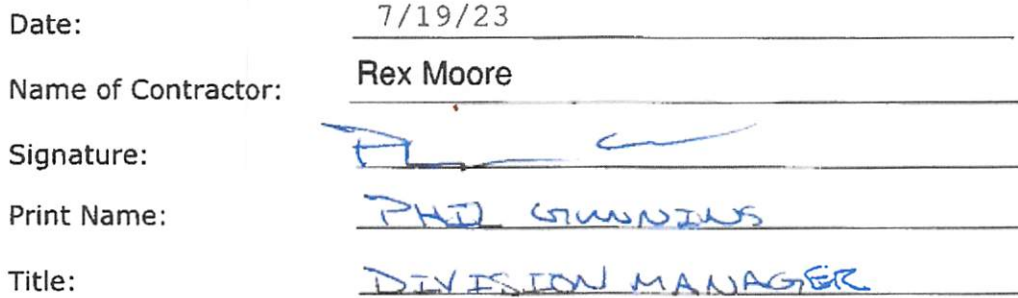 Date: 7/19/23
Name of Contractor: Rex Moore
Signature:
Print Name: PHIL
Title: DIVISION MANAGER